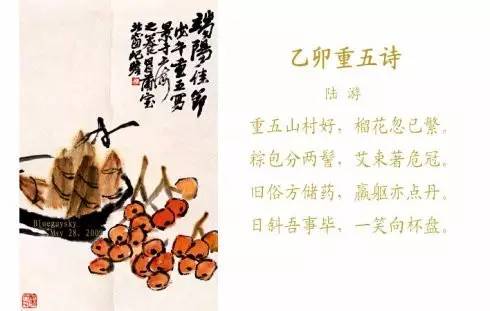 端陽佳節
戊午重五寫
Bluegaysky
May 28, 200
乙卯重五诗
陆 游
重五山村好，榴花忽已繁。
粽包分两髻，艾束著危冠。
旧俗方储药，羸躯亦点丹。
日斜吾事毕，一笑向杯盘。